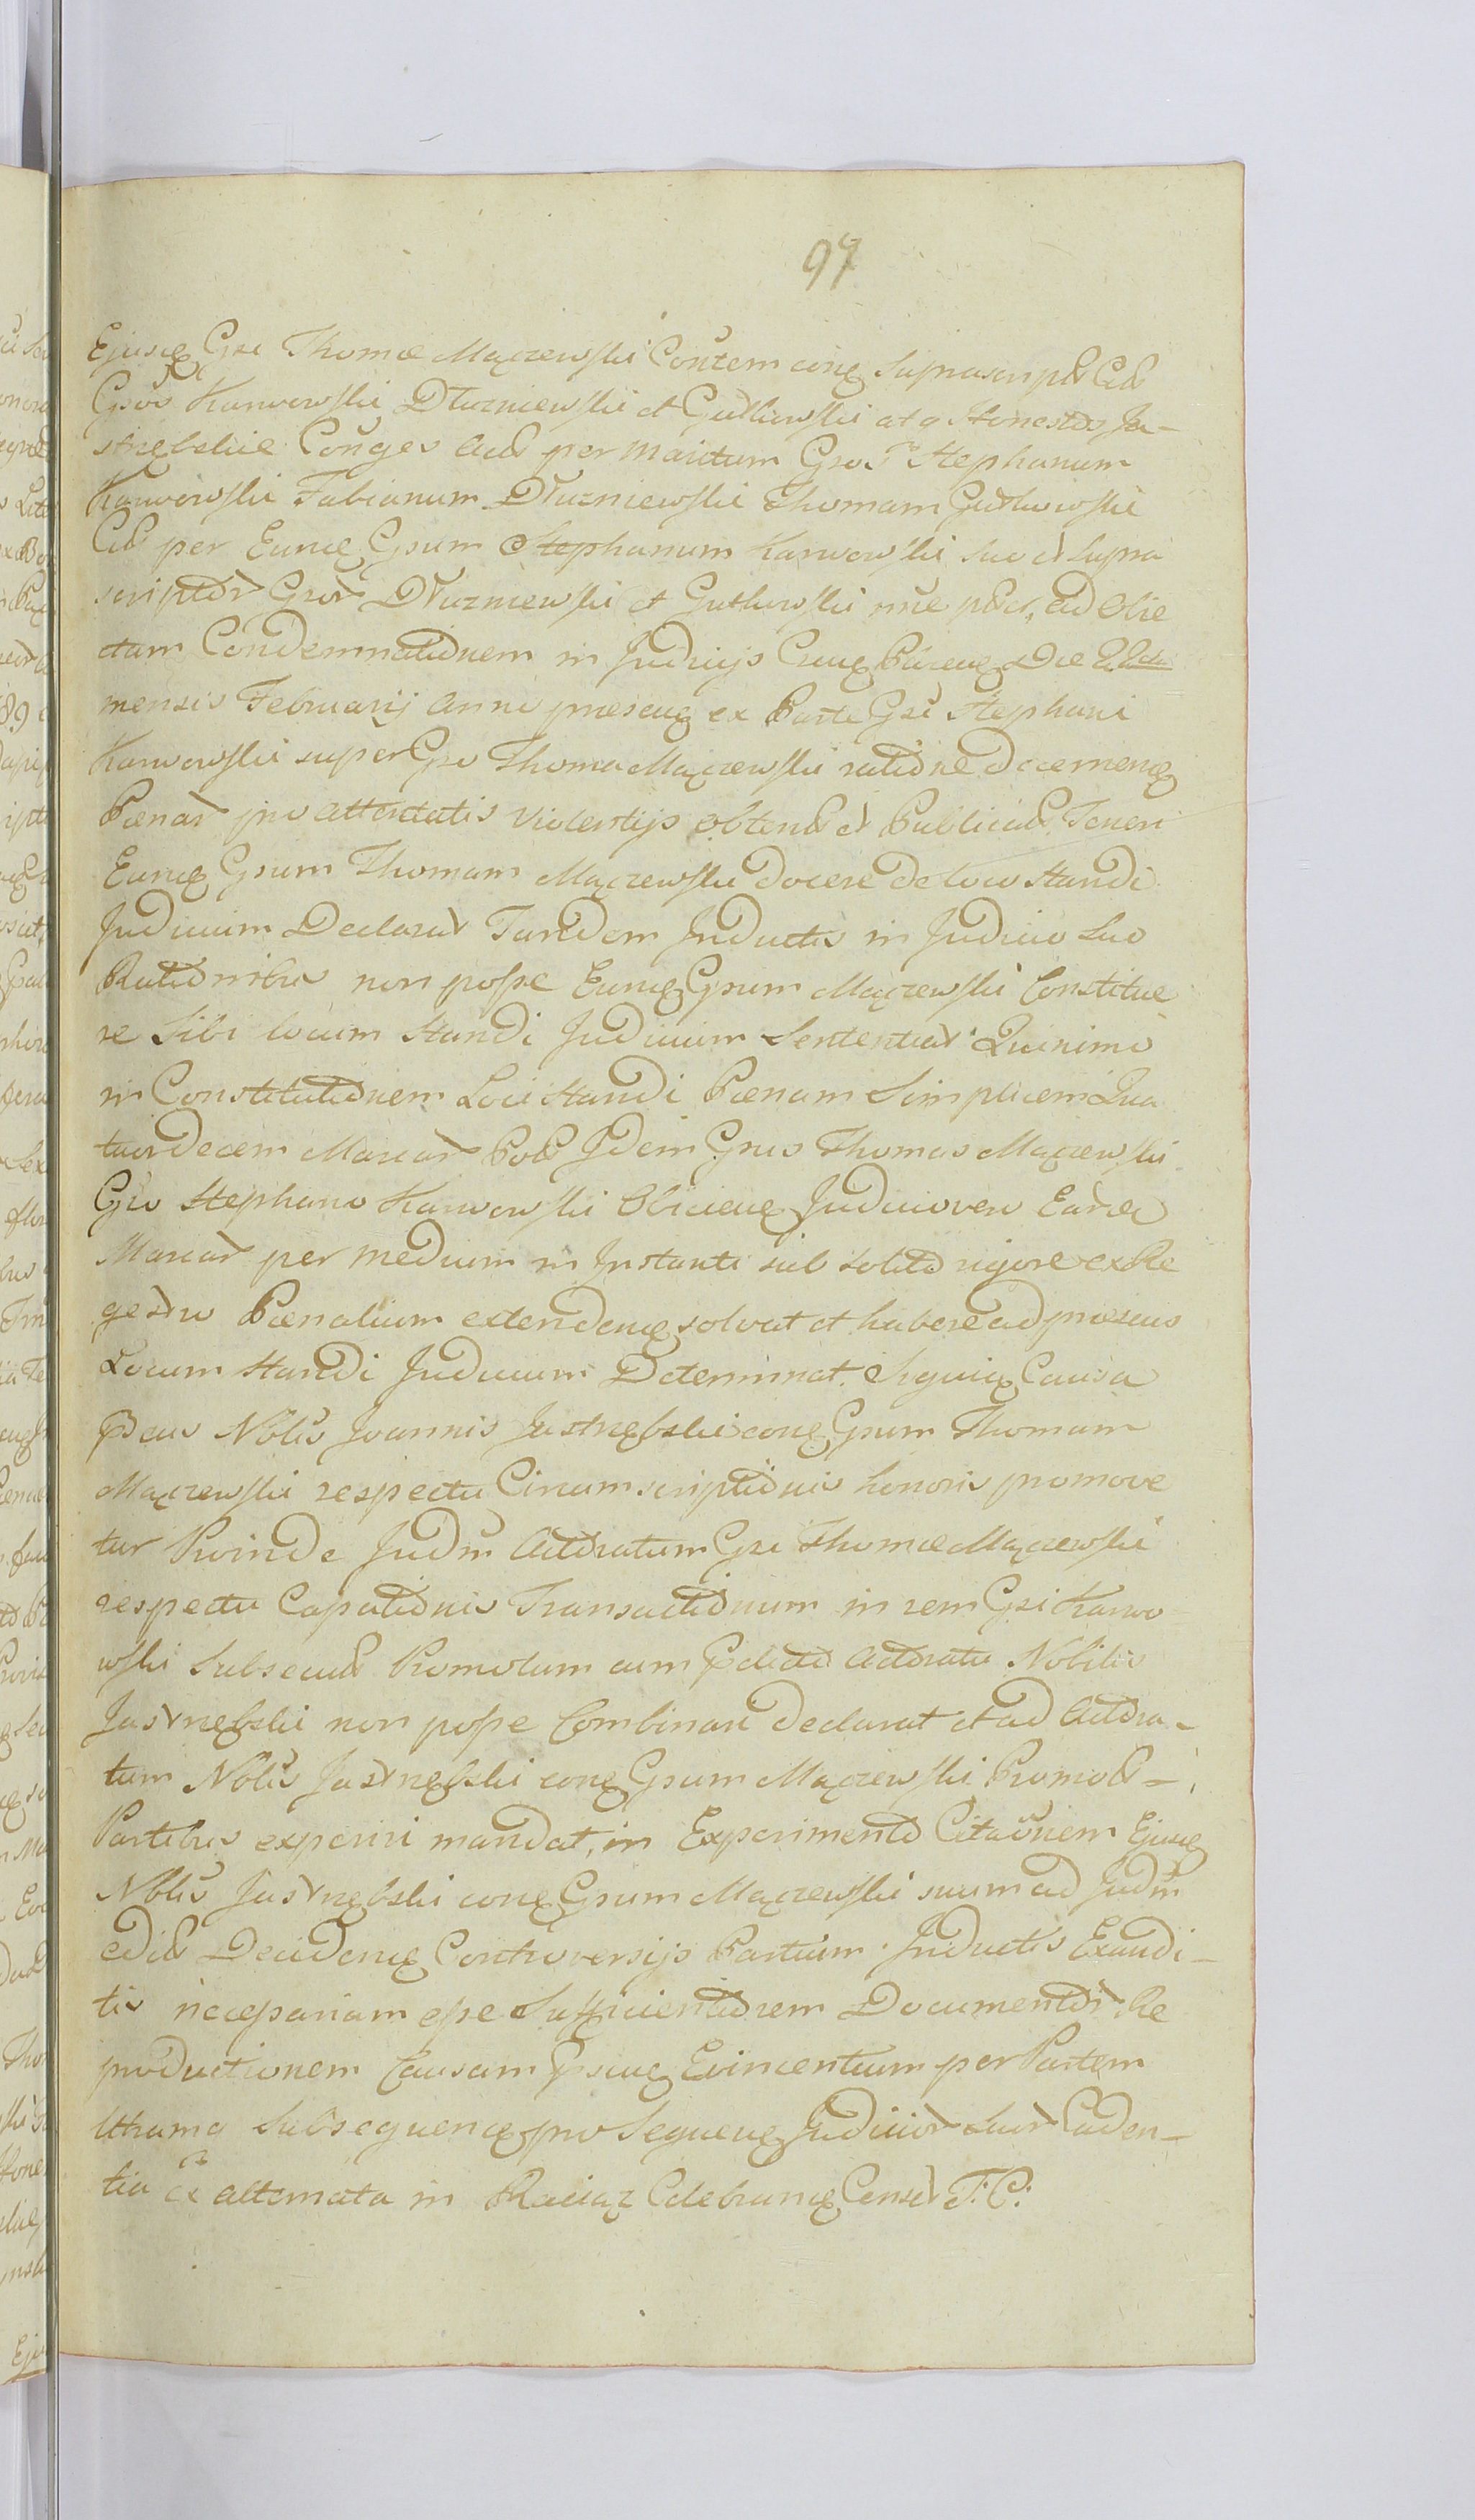 97
Ejusq Gsi Thomæ Mączewski Contem conq suprascriptos Cit
Gsos Karwowski Dłuzniewski et Gutkowski atq Honestos Ja-
strzębskie Conges Act per maritum Gros Stephanum
Karwowski Fabianum Dłuzniewski Thomam Gutkowski
Cit per Eunq Gsum Stephanum Karwowski suo et supra
scriptor Gsor Dłuzniewski et Gutkowski nne ad Obie
ctam Condemnationem in Judicijs Die
mensis Februarij Anni præsenq ex Parte Gsi Stephani
Karwowski super Gso Thoma Mączewski ratione decernenq
Pænar pro attentatis violentijs obtent et Publicat Teneri
Eunq Gsum Thomam Mączewski docere de loco standi
Judicium Declarat Tandem Inductis in Judicio suo
Rationibus non posse Eunq Gsum Mączewski Constitue
re sibi locum standi Judicium sententiat Quinimo
in Constitutionem Loci standi Pænam Simplicem Qua
tuordecem Marcar Pol Idem Gsus Thomas Mączewski
Gso Stephano Karwowski Obicienq Judicio vero Earde
Marcar per medium in Instanti sub solito rigore ex Re
gestro Pænalium extendenq solvat et habere ad præsens
Locum standi Judicium Determinat. Causa
Nobis Joannis Jastrzębski conq Gsum Thomam
Mączewski respectu Circumscriptionis honoris promove
tur Proinde Judm Actoratum Gsi Thomæ Mączewski
respectu Captationis Transactionum in rem Gsi Karwo
wski subsecut Promotum cum Actoratu Nobilis
Jastrzębski non posse Combinari declarat et ad Actora-
tum Nobis Jastrzębski conq Gsum Mączewski Promot-
Partibus experiri mandat, in Experimento Citaonem Ejusq
Nobis Jastrzębski conq Gsum Mączewski suum ad Judm
edit Decidenq Controversijs Partium Inductis Exaudi-
tis necessariam esse sufficientiorem Documentor Re
productionem Causam Evincentium per Partem
Utramq subsequenq pro sequenq Judicior suor Caden-
tia ex alternata in Raciąz Celebranq Censet T: C: